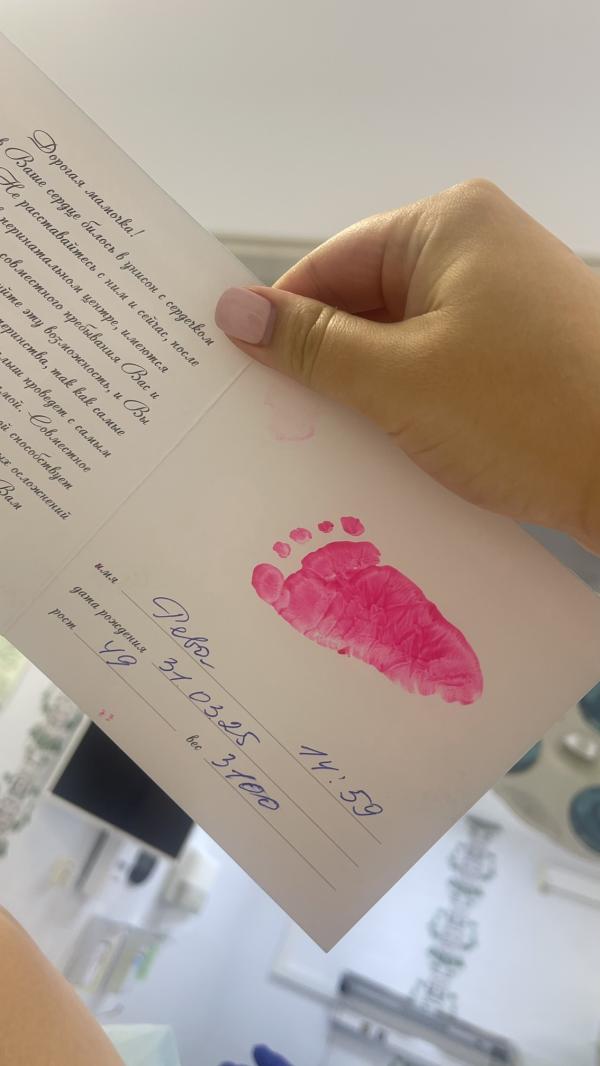 Дорогая мамочка!
Ваше сердце билось в унисон с сердечком
Не расставайтесь с ним и сейчас, после
перинатальном центре, имеются
совместного пребывания Вас и
эту возможность, и Вы
так как самые
проведет с самым
Совместное
способствует
осложнений
Вам
имя Рева
дата рождения 310325 14:59
рост 49 вес 3100